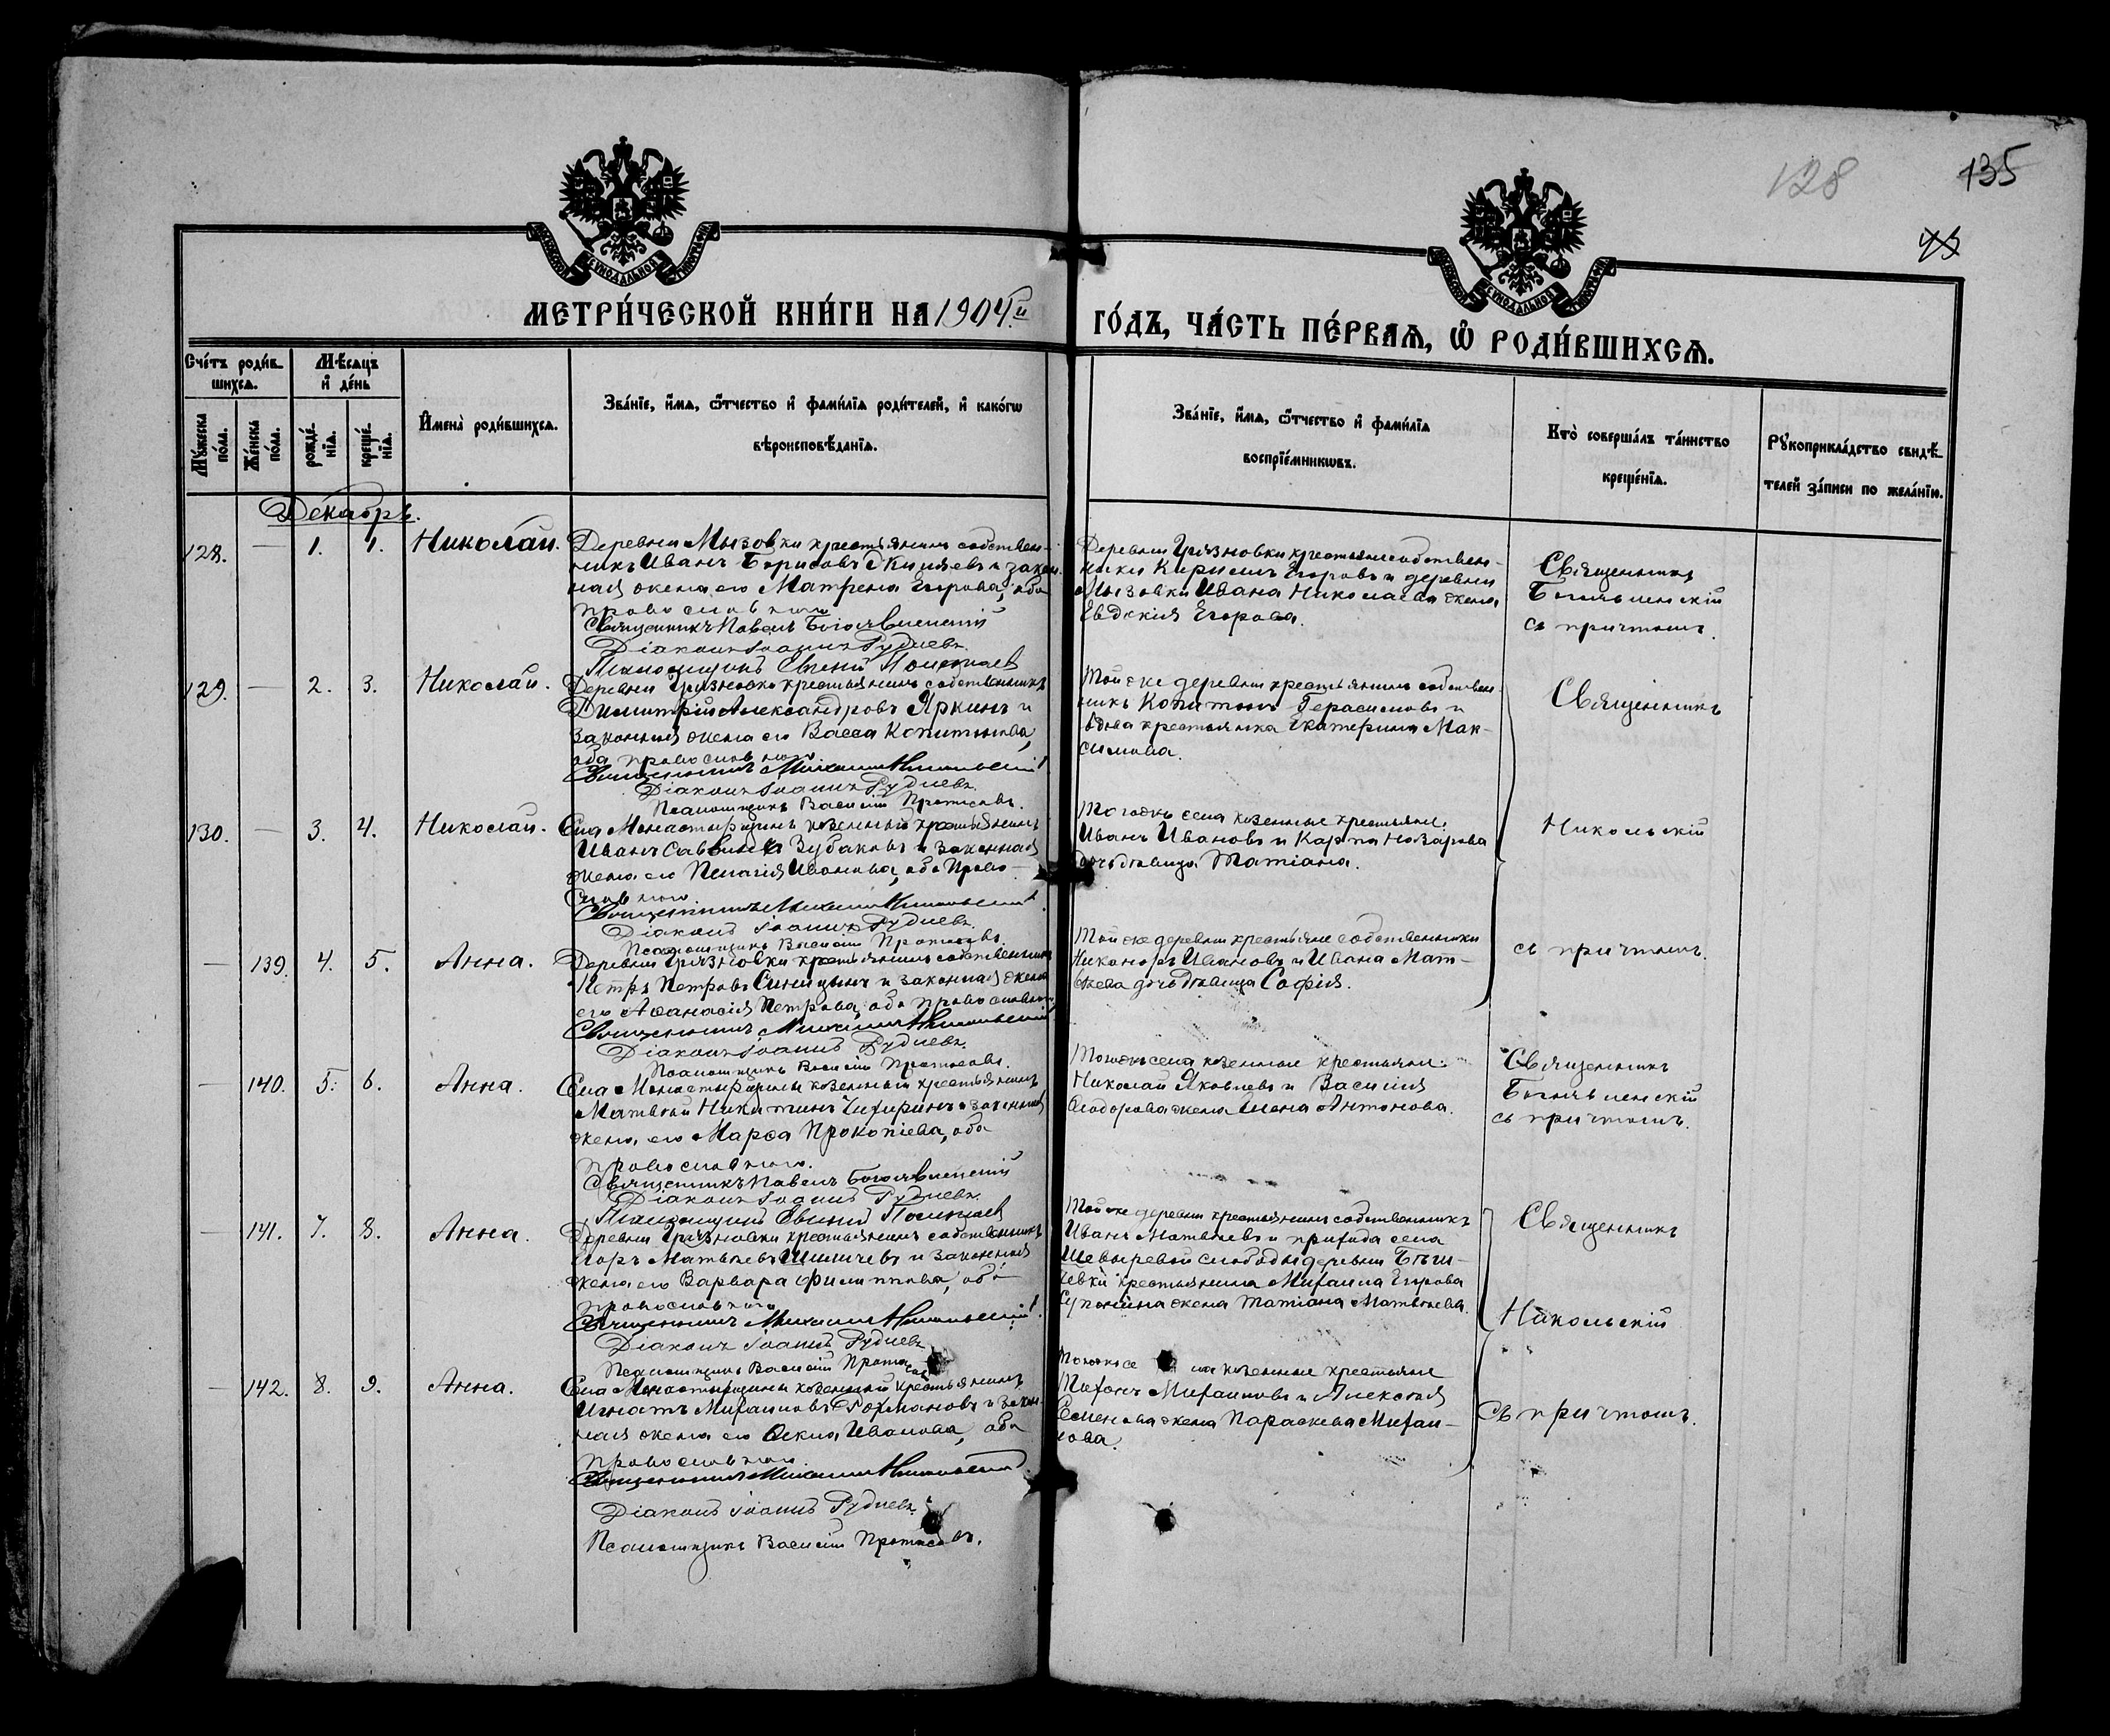 128
135
43
МЕТРИ́ЧЕСКОЙ КНИ́ГИ НА 1904й
ГО́ДЪ, ЧА́СТЬ ПЕ́РВАѦ, Ѡ҆ РОДИ́ВШИХСѦ.
Сче́тъ роди́в-
шихсѧ.
Мѣ́сѧцъ
и҆ де́нь
Му́жеска по́ла.
Же́нска по́ла.
рожде́-нїѧ.
креще́-нїѧ.
И҆мена̀ роди́вшихсѧ.
Зва́нїе, и҆́мѧ, ѻ҆́тчество и҆ фами́лїѧ роди́телей, и҆ како́гѡ
вѣроисповѣ́данїѧ.
Зва́нїе, и҆́мѧ, ѻ҆́тчество и҆ фами́лїѧ
воспрїе́мникѡвъ.
Кто̀ соверша́лъ та́инство
креще́нїѧ.
Рꙋкоприкла́дство свидѣ́-
телей за́писи по жела́нїю.
Декабрь.
128. — 1. 1. Николай.
Деревни Мызовки крестьянинъ собствен-
никъ Иванъ Борисовъ и закон-
ная жена его Матрена Егорова, оба
православнаго
Священникъ Павелъ Богоявленскій
Діаконъ Іоаннъ Рудневъ.
Псаломщикъ Евгеній
Деревни Грязновки крестьяне собствен-
ники Кириллъ Егоровъ и деревни
Мызовки Ивана Николаева жена
Евдокія Егорова.
Священникъ
Богоявленскій
съ причтомъ.
129. — 2. 3. Николай.
Деревни Грязновки крестьянинъ собственникъ
Димитрій Александровъ Яркинъ и
законная жена его Васса Капитонова,
оба православнаго
Священникъ Михаилъ Никольскій
Діаконъ Іоаннъ Рудневъ.
Псаломщикъ Василій Протасовъ.
Той же деревни крестьянинъ собствен-
никъ Капитонъ Герасимовъ и
вдова крестьянка Екатерина Мак-
симова.
Священникъ
130. — 3. 4. Николай.
Села Монастырщины казенный крестьянинъ
Иванъ Саввинъ Зубаковъ и законная
жена его Пелагія Иванова, оба право-
славнаго
Священникъ Михаилъ Никольскій
Діаконъ Іоаннъ Рудневъ.
Псаломщикъ Василій Протасовъ.
Того же села казенные крестьяне:
Иванъ Ивановъ и Карпа Назарова
дочь дѣвица Татіана.
Никольскій
— 139. 4. 5. Анна.
Деревни Грязновки крестьянинъ собственникъ
Петръ Петровъ Синицынъ и законная жена
его Аѳанасія Петрова, оба православнаго
Священникъ Михаилъ Никольскій
Діаконъ Іоаннъ Рудневъ.
Псаломщикъ Василій Протасовъ.
Той же деревни крестьяне собственники
Никаноръ Ивановъ и Ивана Мат-
вѣева дочь дѣвица Софія.
съ причтомъ.
— 140. 5. 6. Анна.
Села Монастырщины казенный крестьянинъ
Матвѣй Никитинъ Чихиринъ и законная
жена его Марѳа Прокопіева, оба
православнаго.
Священникъ Павелъ Богоявленскій
Діаконъ Іоаннъ Рудневъ.
Псаломщикъ Евгеній
Того же села казенные крестьяне:
Николай Яковлевъ и Василія
Ѳеодорова жена Елена Антонова.
Священникъ
Богоявленскій
съ причтомъ.
— 141. 7. 8. Анна.
Деревни Грязновки крестьянинъ собственникъ
Егоръ Матвѣевъ и законная
жена его Варвара Филиппова, оба
православнаго
Священникъ Михаилъ Никольскій
Діаконъ Іоаннъ Рудневъ
Псаломщикъ Василій Протасовъ
Той же деревни крестьянинъ собственникъ
Иванъ Матвѣевъ и прихода села
Шевыревой слободы деревни Бѣги-
чевки крестьянина Михаила Егорова
жена Татіана Матвѣева.
Священникъ
Никольскій
— 142. 8. 9. Анна.
Села Монастырщины казенный крестьянинъ
Игнатъ Михаиловъ и закон-
ная жена его Ѳекла Иванова, оба
православнаго.
Священникъ Михаилъ Никольскій
Діаконъ Іоаннъ Рудневъ
Псаломщикъ Василій Протасовъ.
Того же села казенные крестьяне
Тихонъ Михаиловъ и Алексѣя
Семенова жена Параскева Михаи-
лова.
съ причтомъ.